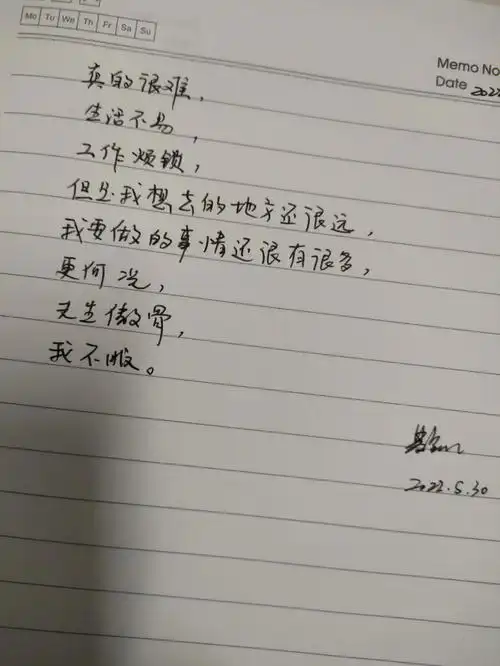 Mo Tu We Th Fr Sa Su
Memo No
Date 2022
真的很难，
生活不易，
工作烦锁，
但是我想去的地方还很远，
我要做的事情还很有很多，
更何况，
天生傲骨，
我不服。
2022.5.30